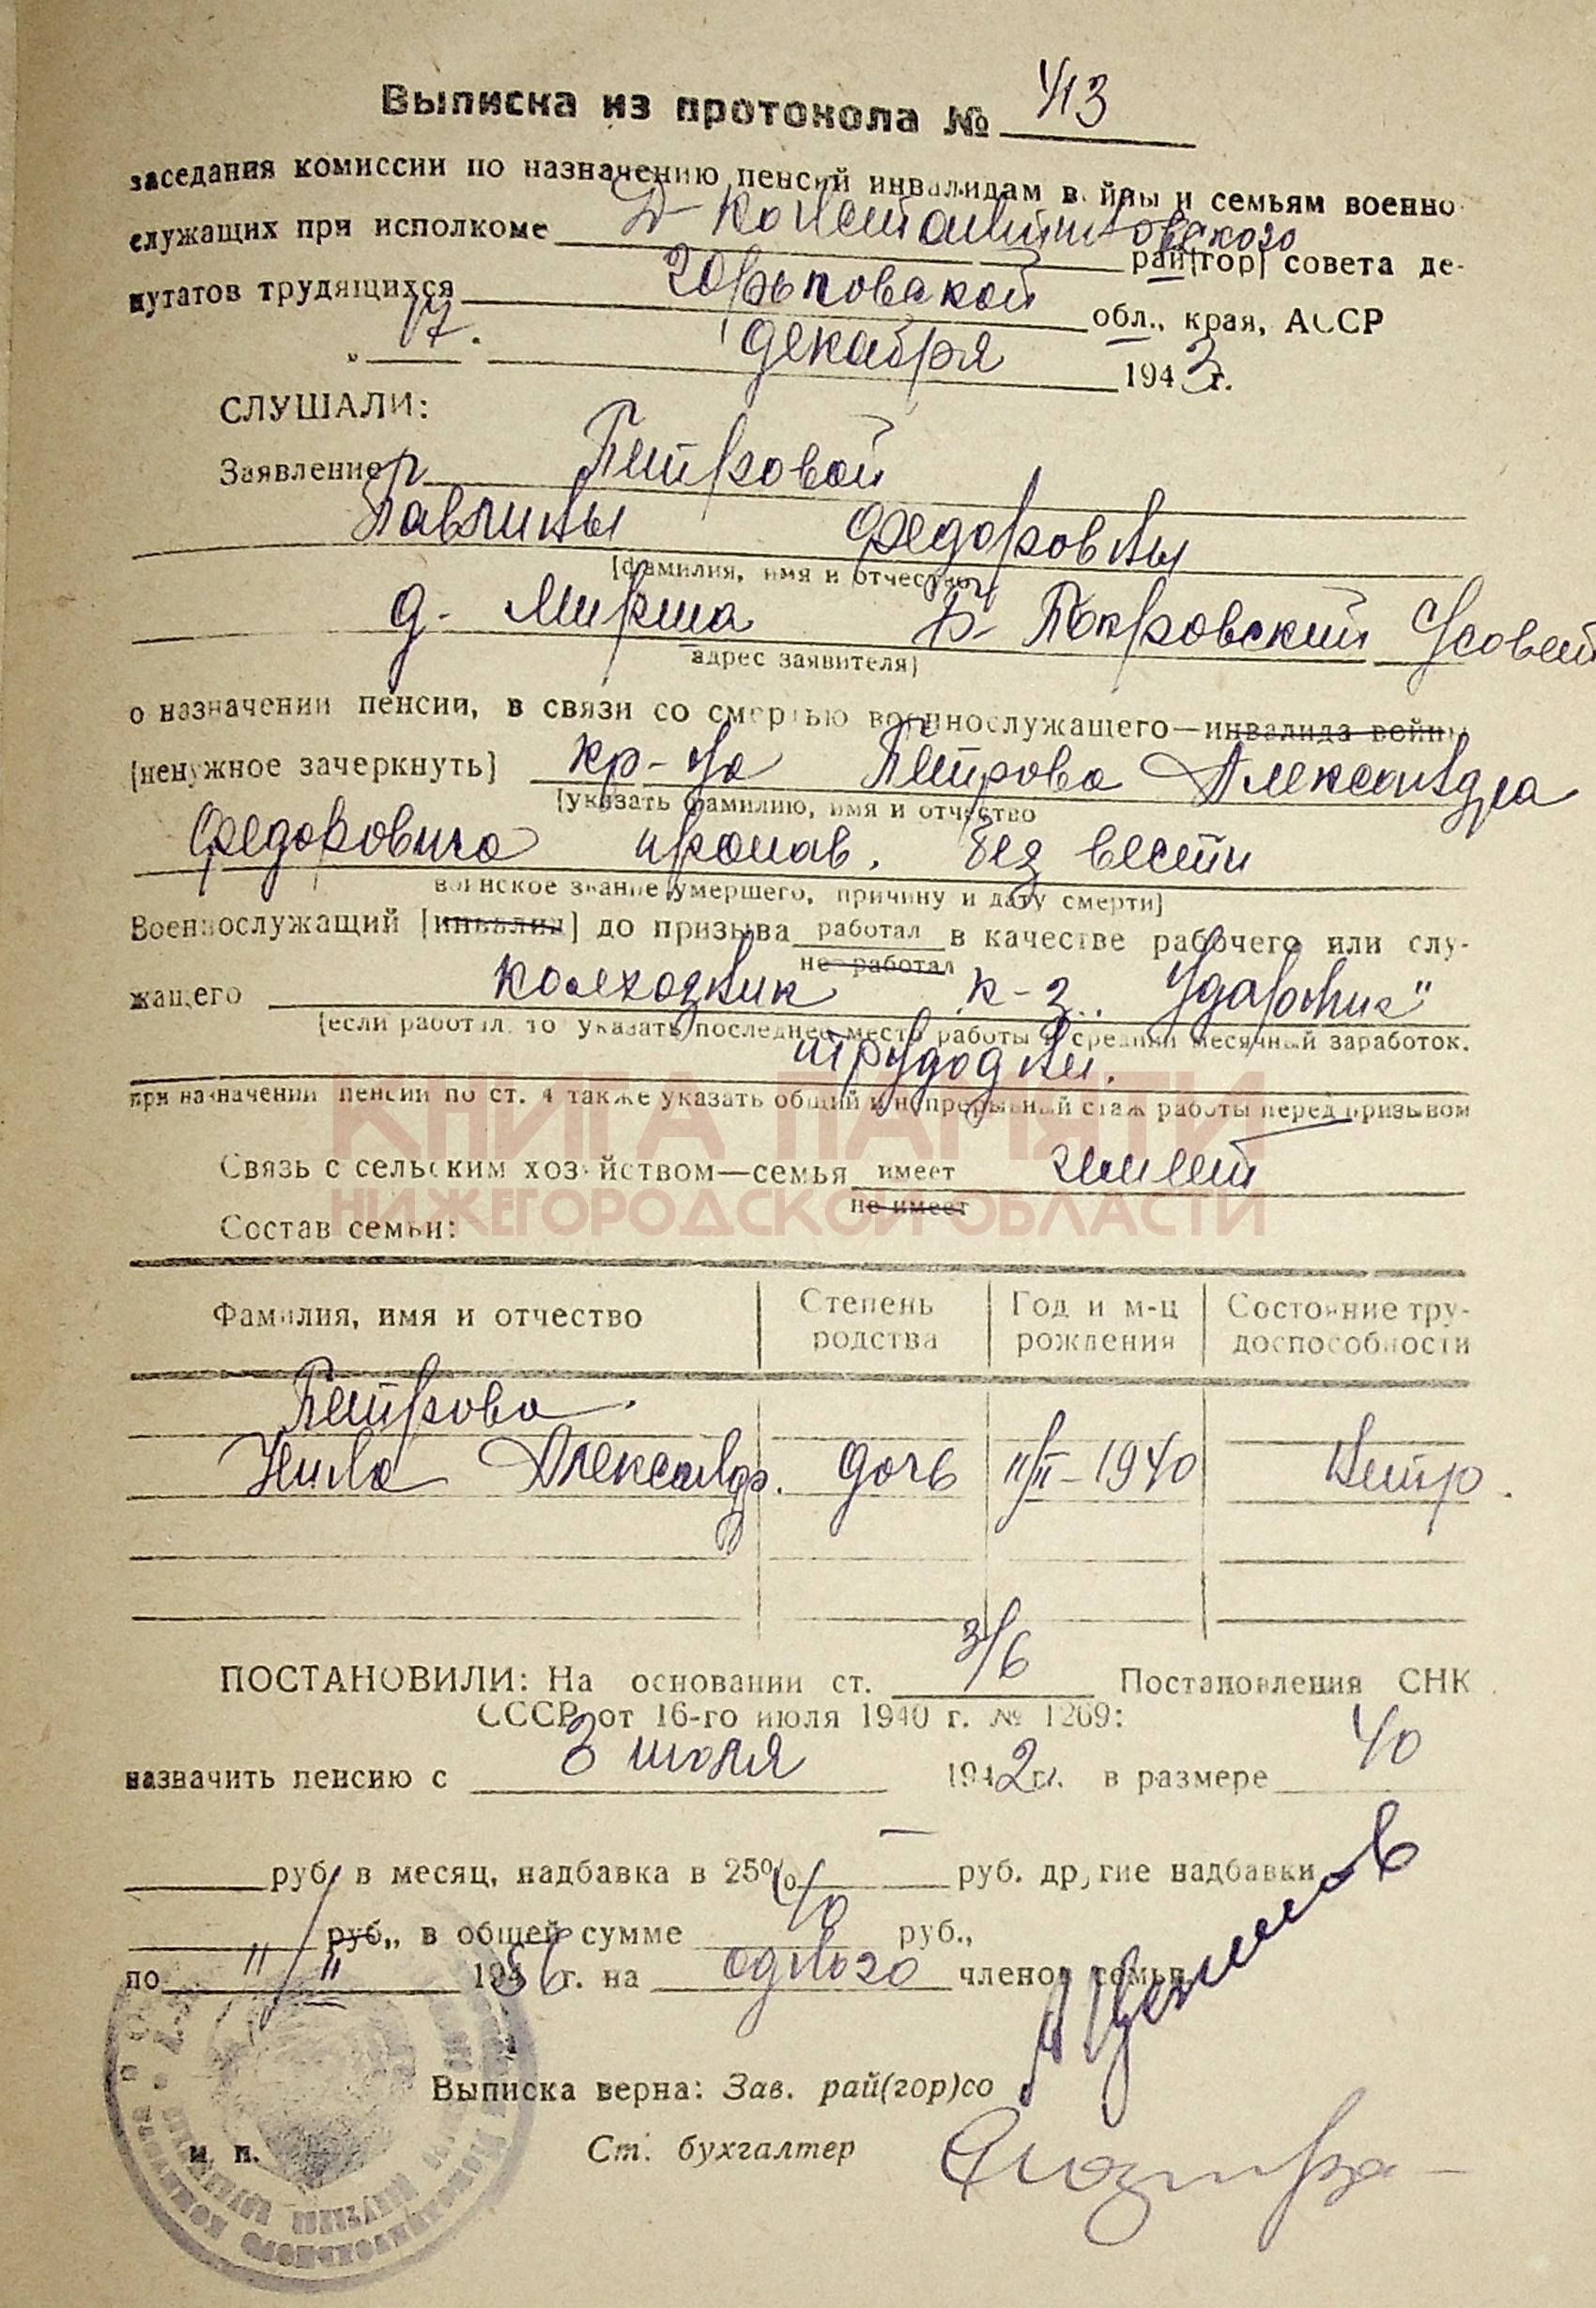 Выписка из протокола № 413
заседания комиссии по назначению пенсий инвалидам войны и семьям военно-
служащих при исполкоме Д-Константиновского
рай[гор] совета де-
путатов трудящихся Горьковской обл., края, АССР
" 17. декабря 1943 г.
СЛУШАЛИ:
Заявление Петровой
Павлины Федоровны
[фамилия, имя и отчество]
д. Мирша Б-Покровский с/совет
адрес заявителя]
о назначении пенсии, в связи со смертью военнослужащего—инвалида войны
[ненужное зачеркнуть] кр-ца Петрова Александра
[указать фамилию, имя и отчество
Федоровича пропав. без вести
воинское звание умершего, причину и дату смерти]
Военнослужащий [инвалид] до призыва работал в качестве рабочего или слу-
не работал
жащего колхозник к-з „Ударник"
[если работал, то указать последнее место работы и средний месячный заработок.
трудодни.
при назначении пенсии по ст. 4 также указать общий и непрерывный стаж работы перед призывом
КНИГА ПАМЯТИ
Связь с сельским хозяйством—семья имеет имеет
не имеет
НИЖЕГОРОДСКОЙ ОБЛАСТИ
Состав семьи:
Фамилия, имя и отчество Степень родства Год и м-ц рождения Состояние тру-доспособности
Петрова
Нина Александр. дочь 11/II-1940 нетр.
ПОСТАНОВИЛИ: На основании ст. 3/6 Постановления СНК
СССР от 16-го июля 1940 г. № 1269:
назначить пенсию с 3 июля 1942 г. в размере 40
руб. в месяц, надбавка в 25% — руб. другие надбавки
руб., в общей сумме 40 руб.,
по 11/II 1956 г. на одного членов семьи
Выписка верна: Зав. рай(гор)со
м. п. Ст. бухгалтер